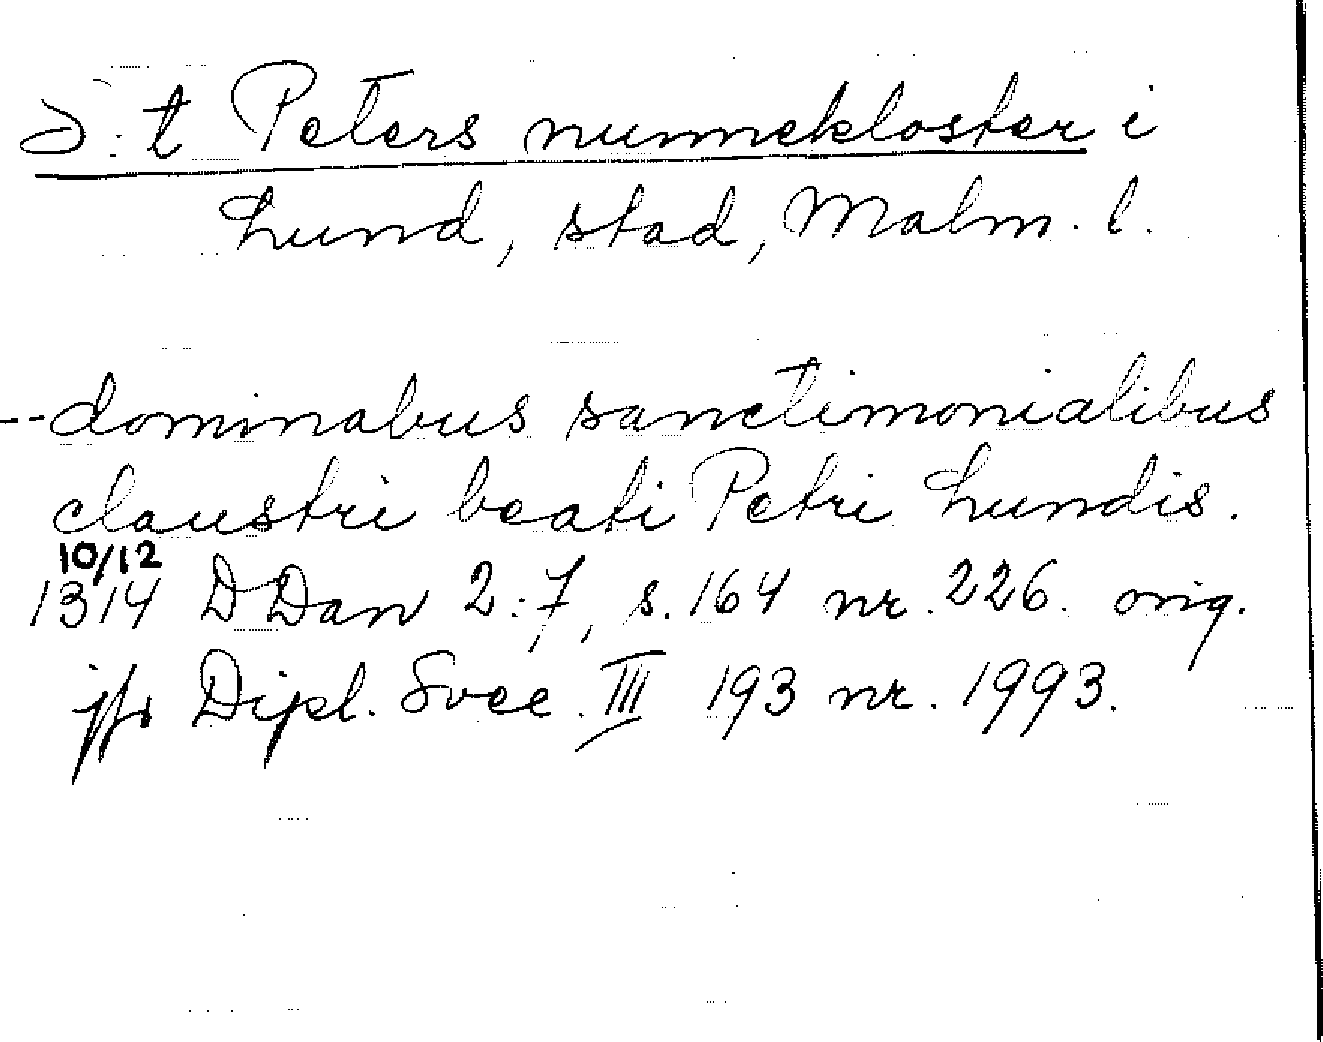 S:t Peters nunnekloster i
Lund, stad, Malm. l.
--dominabus sanctimonialibus
claustri beati Petri Lundis.
10/12
1314 DDan 2:7, s. 164 nr. 226. orig.
jfr Dipl. Svec. III 193 nr. 1993.